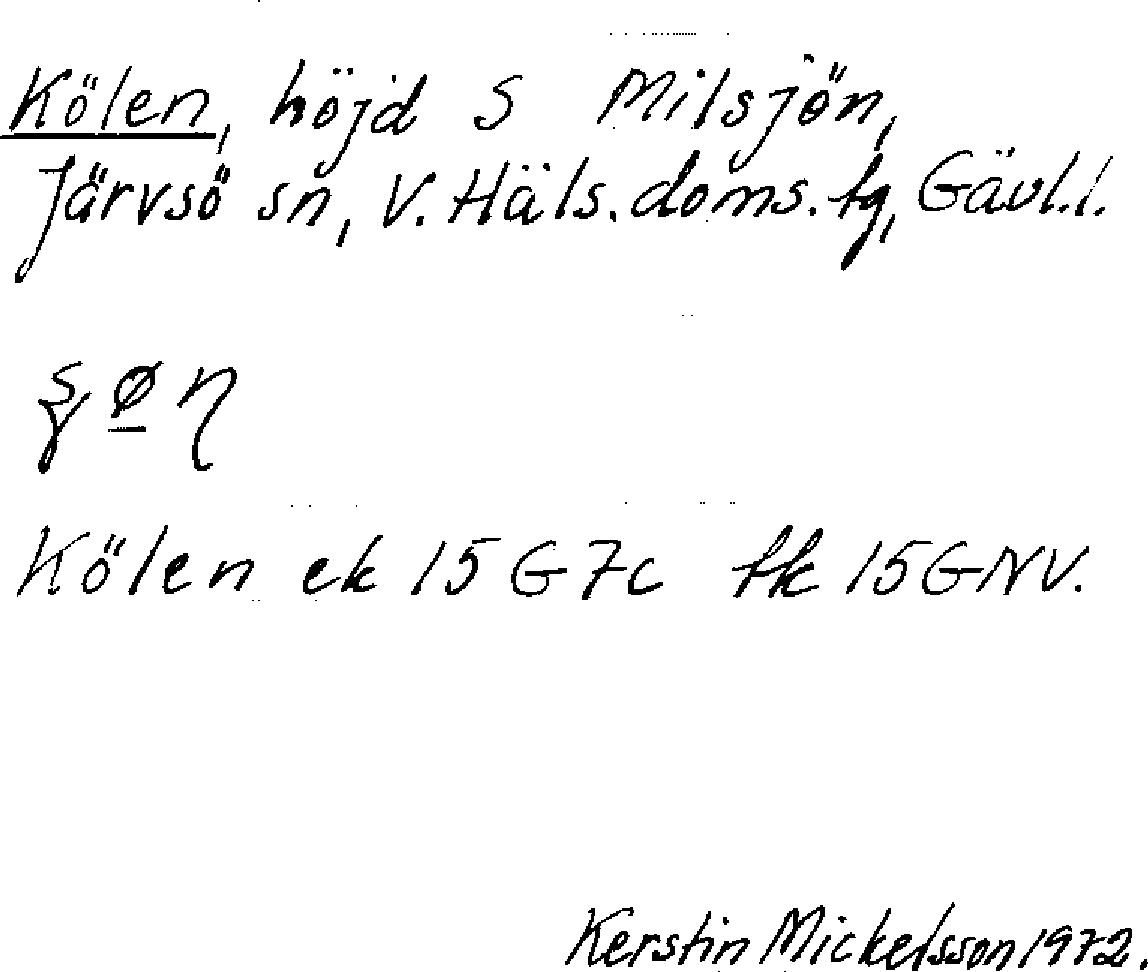 Kölen, höjd S Milsjön,
Järvsö sn, V. Häls. doms. tg, Gävl.l.
Kölen ek 15 G 7c tk 15 G NV.
Kerstin Mickelsson 1972.